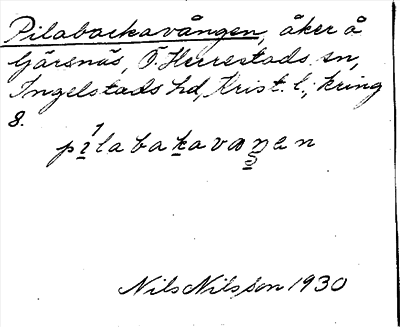 Pilabackavången, åker å
Gärsnäs, Ö. Herrestads sn,
Ingelstads hd, Krist. l., kring
8.
pilabakavaŋen
Nils Nilsson 1930